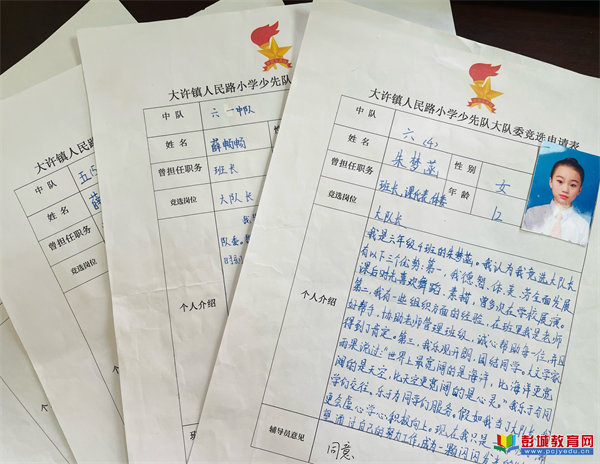 大许镇人民路小学
中队
五(5
姓名
薛
曾担任职务
竞选岗位
个人介绍
大许镇人民路小学少先队
中队
六 一中队
姓名
薛畅畅
曾担任职务
班长
竞选岗位
大队长
个人介绍
大许镇人民路小学少先队大队委竞选申请表
中队
六(4)
姓名
朱梦菡
性别
女
曾担任职务
班长,课代表,体委
年龄
12
竞选岗位
大队长
个人介绍
我是六年级4班的朱梦菡。我认为我竞选大队长
有以下三个优势:第一,我德智体美劳全面发展
课后时光喜欢舞蹈、素描,曾多次在学校展演。
第二,我有一些组织方面的经验,在班里我是老师
好帮手,协助老师管理班级,诚心帮助每一位,并且
得到了肯定。第三,我乐观开朗,团结同学。大文学家
雨果说过:"世界上最宽阔的是海洋,比海洋更宽
阔的是天空,比天空更宽阔的是心灵。"我乐于与同
学们交往,乐于为同学们服务,假如我当上大队长,我
更会虚心学习积极向上。现在我只是
通过自己的努力工作成为一颗闪闪发光的
辅导员意见
同意
彭城教育网
www.pcjyedu.cn